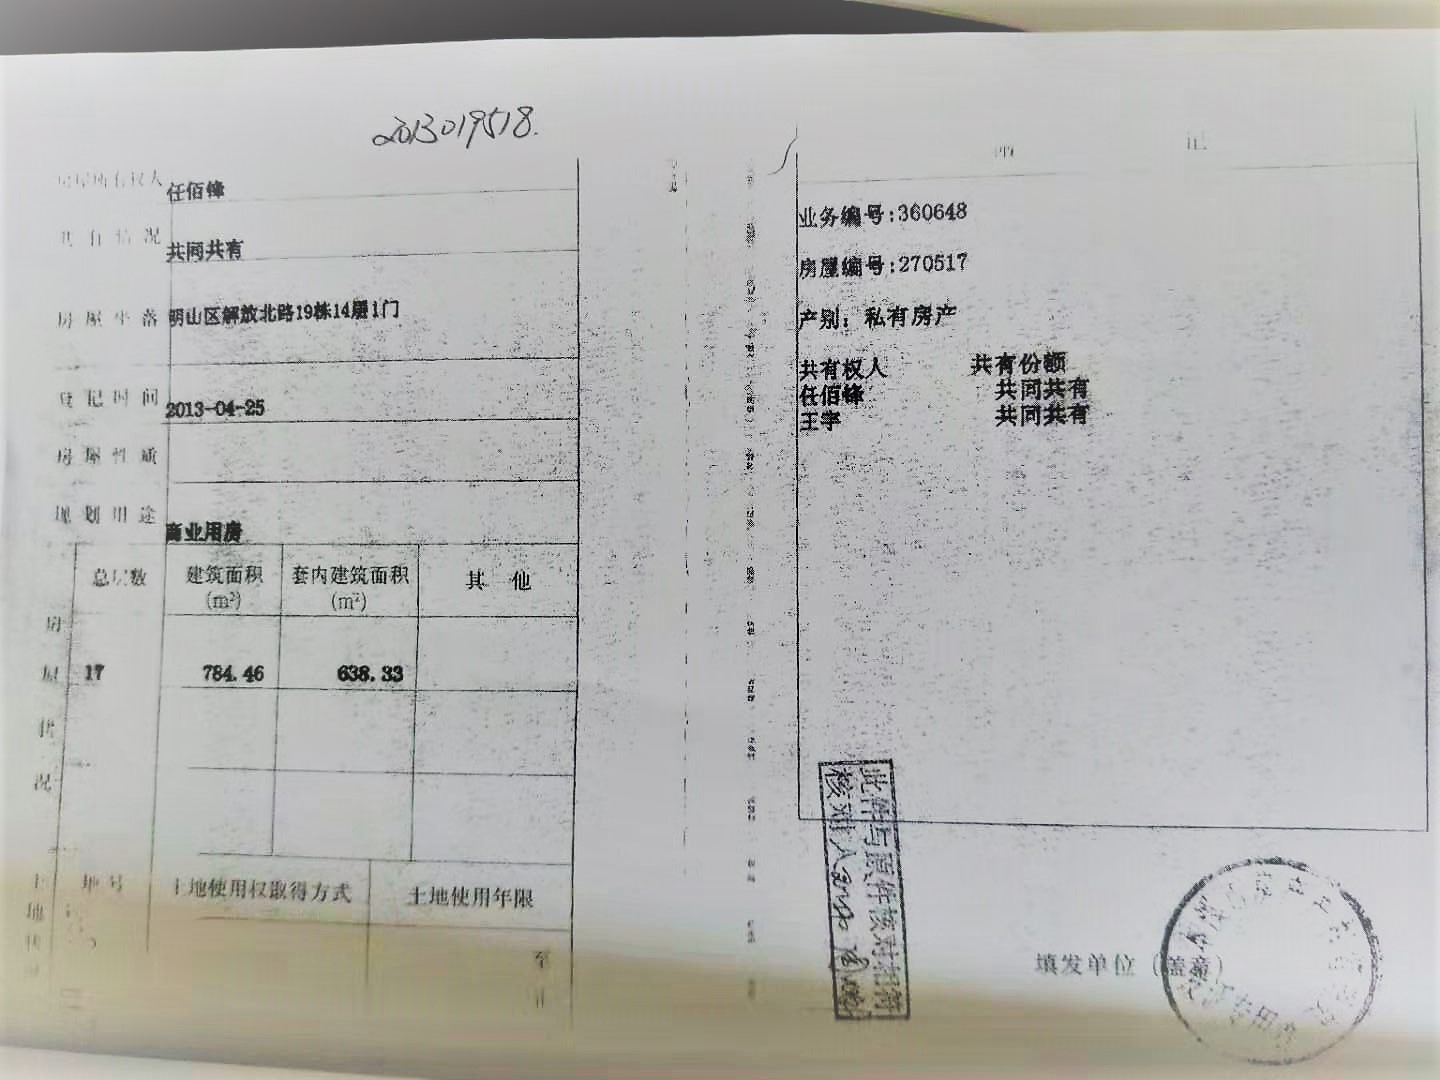 2013019518.
房屋所有权人 任佰锋
共有情况 共同共有
房屋坐落 明山区解放北路19栋14层1门
登记时间 2013-04-25
房屋性质
规划用途 商业用房
房屋状况
总层数 建筑面积(m²) 套内建筑面积(m²) 其他
17 784.46 638.33
土地
地号 土地使用权取得方式 土地使用年限
至
止
附 记
业务编号:360648
房屋编号:270517
产别: 私有房产
共有权人 共有份额
任佰锋 共同共有
王宇 共同共有
此件与原件核对相符
核对人
填发单位(盖章)
专用章